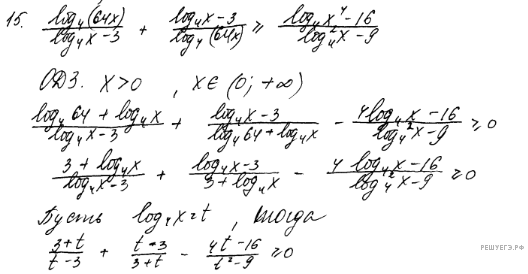 15. log₄(64x)/(log₄x-3) + (log₄x-3)/log₄(64x) ≥ (log₄x⁴-16)/(log₄²x-9)
ОДЗ. x>0 , x∈(0; +∞)
(log₄64 + log₄x)/(log₄x-3) + (log₄x-3)/(log₄64+log₄x) - (4log₄x-16)/(log₄²x-9) ≥0
(3 + log₄x)/(log₄x-3) + (log₄x-3)/(3+log₄x) - (4 log₄x-16)/(log₄²x-9) ≥0
Пусть log₄x=t , тогда
(3+t)/(t-3) + (t-3)/(3+t) - (4t-16)/(t²-9) ≥0
РЕШУЕГЭ.РФ